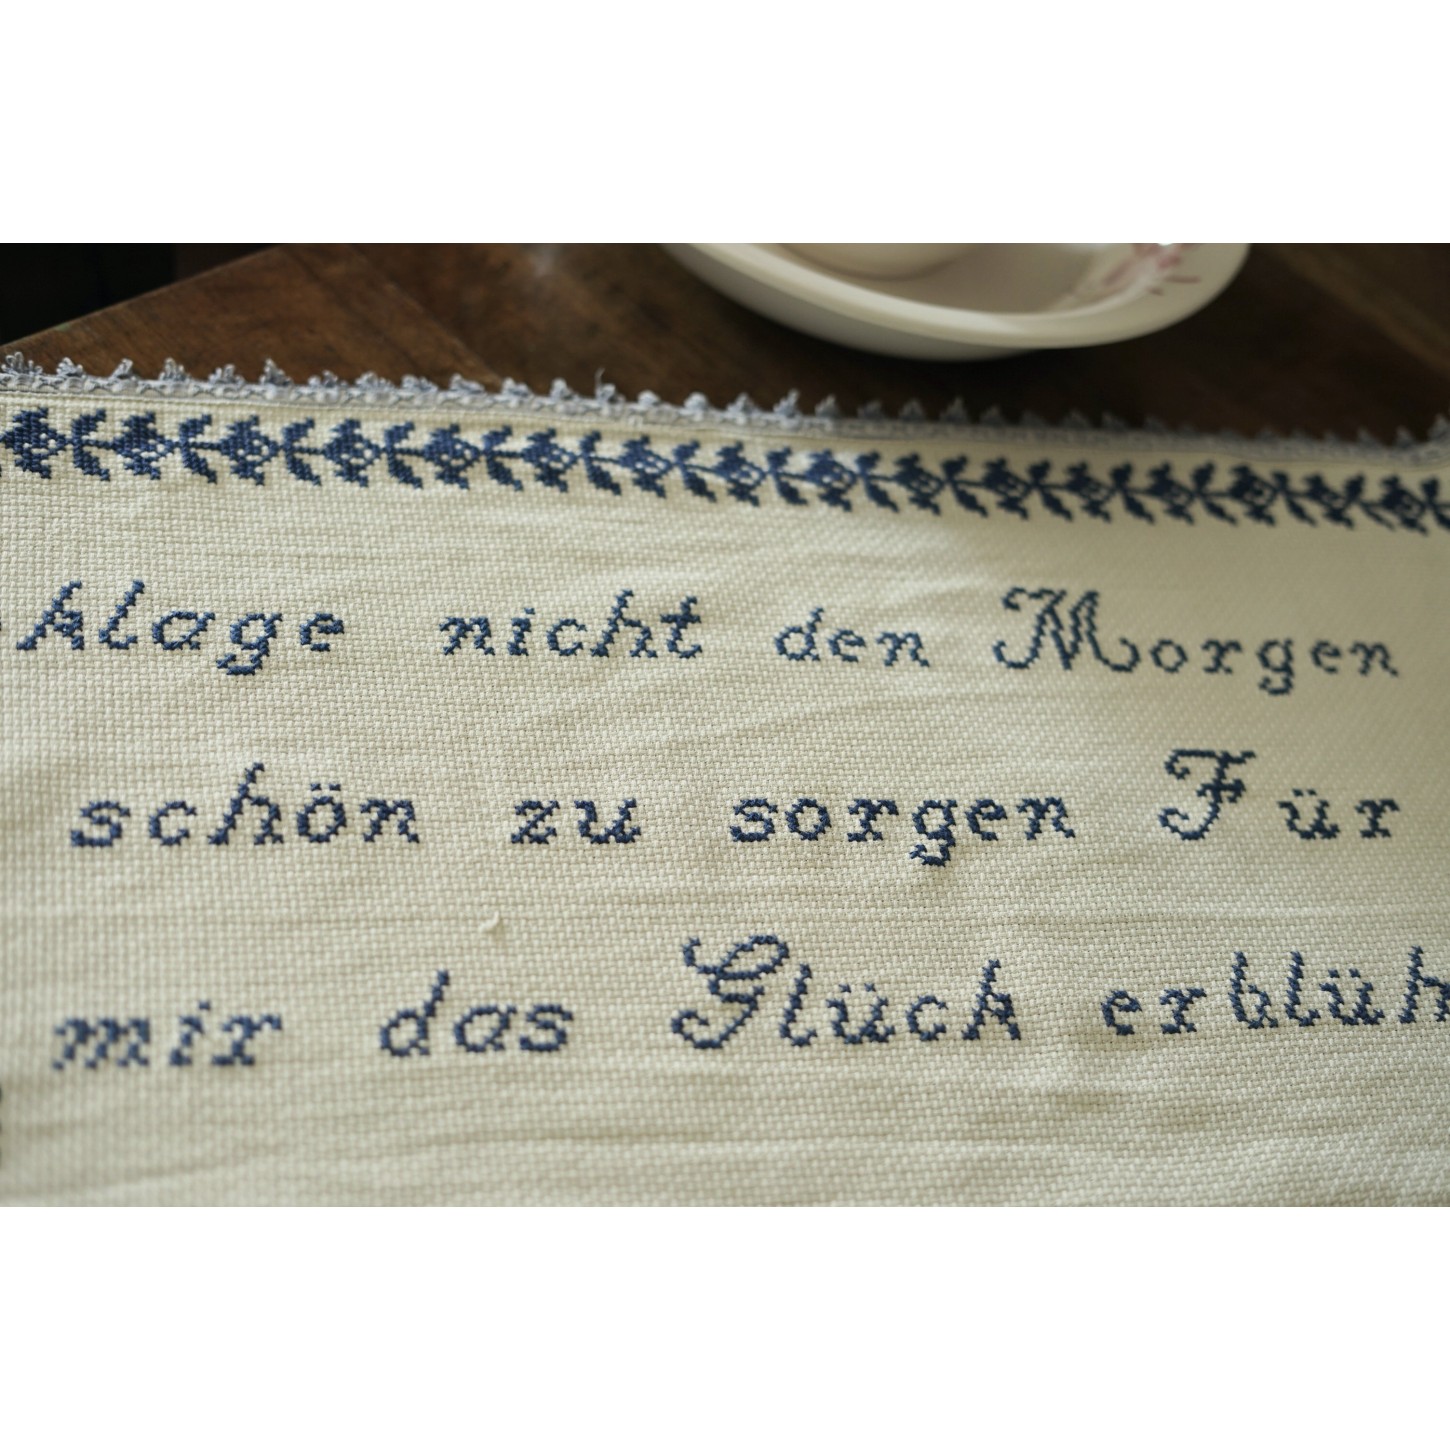 klage nicht den Morgen
schön zu sorgen Für
mir das Glück erblüh